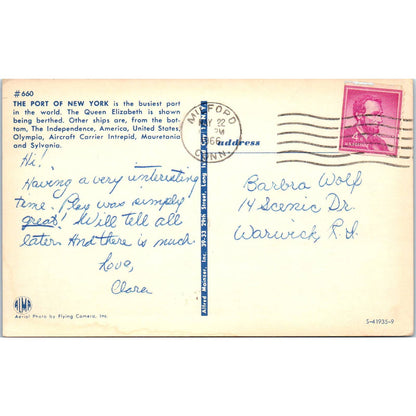 #660
THE PORT OF NEW YORK is the busiest port
in the world. The Queen Elizabeth is shown
being berthed. Other ships are, from the bot-
tom, The Independence, America, United States,
Olympia, Aircraft Carrier Intrepid, Mauretania
and Sylvania.
Hi!
Having a very interesting
time. Play was simply
great! Will tell all
later. And there is much.
Love,
Clara
ALMA
Aerial Photo by Flying Camera, Inc.
Alfred Mainzer, Inc. 39-33 29th Street, Long
address
MILFORD
22
PM
1966
CONN.
4¢
Barbra Wolf
14 Scenic Dr.
Warwick, R.I.
S-41935-9